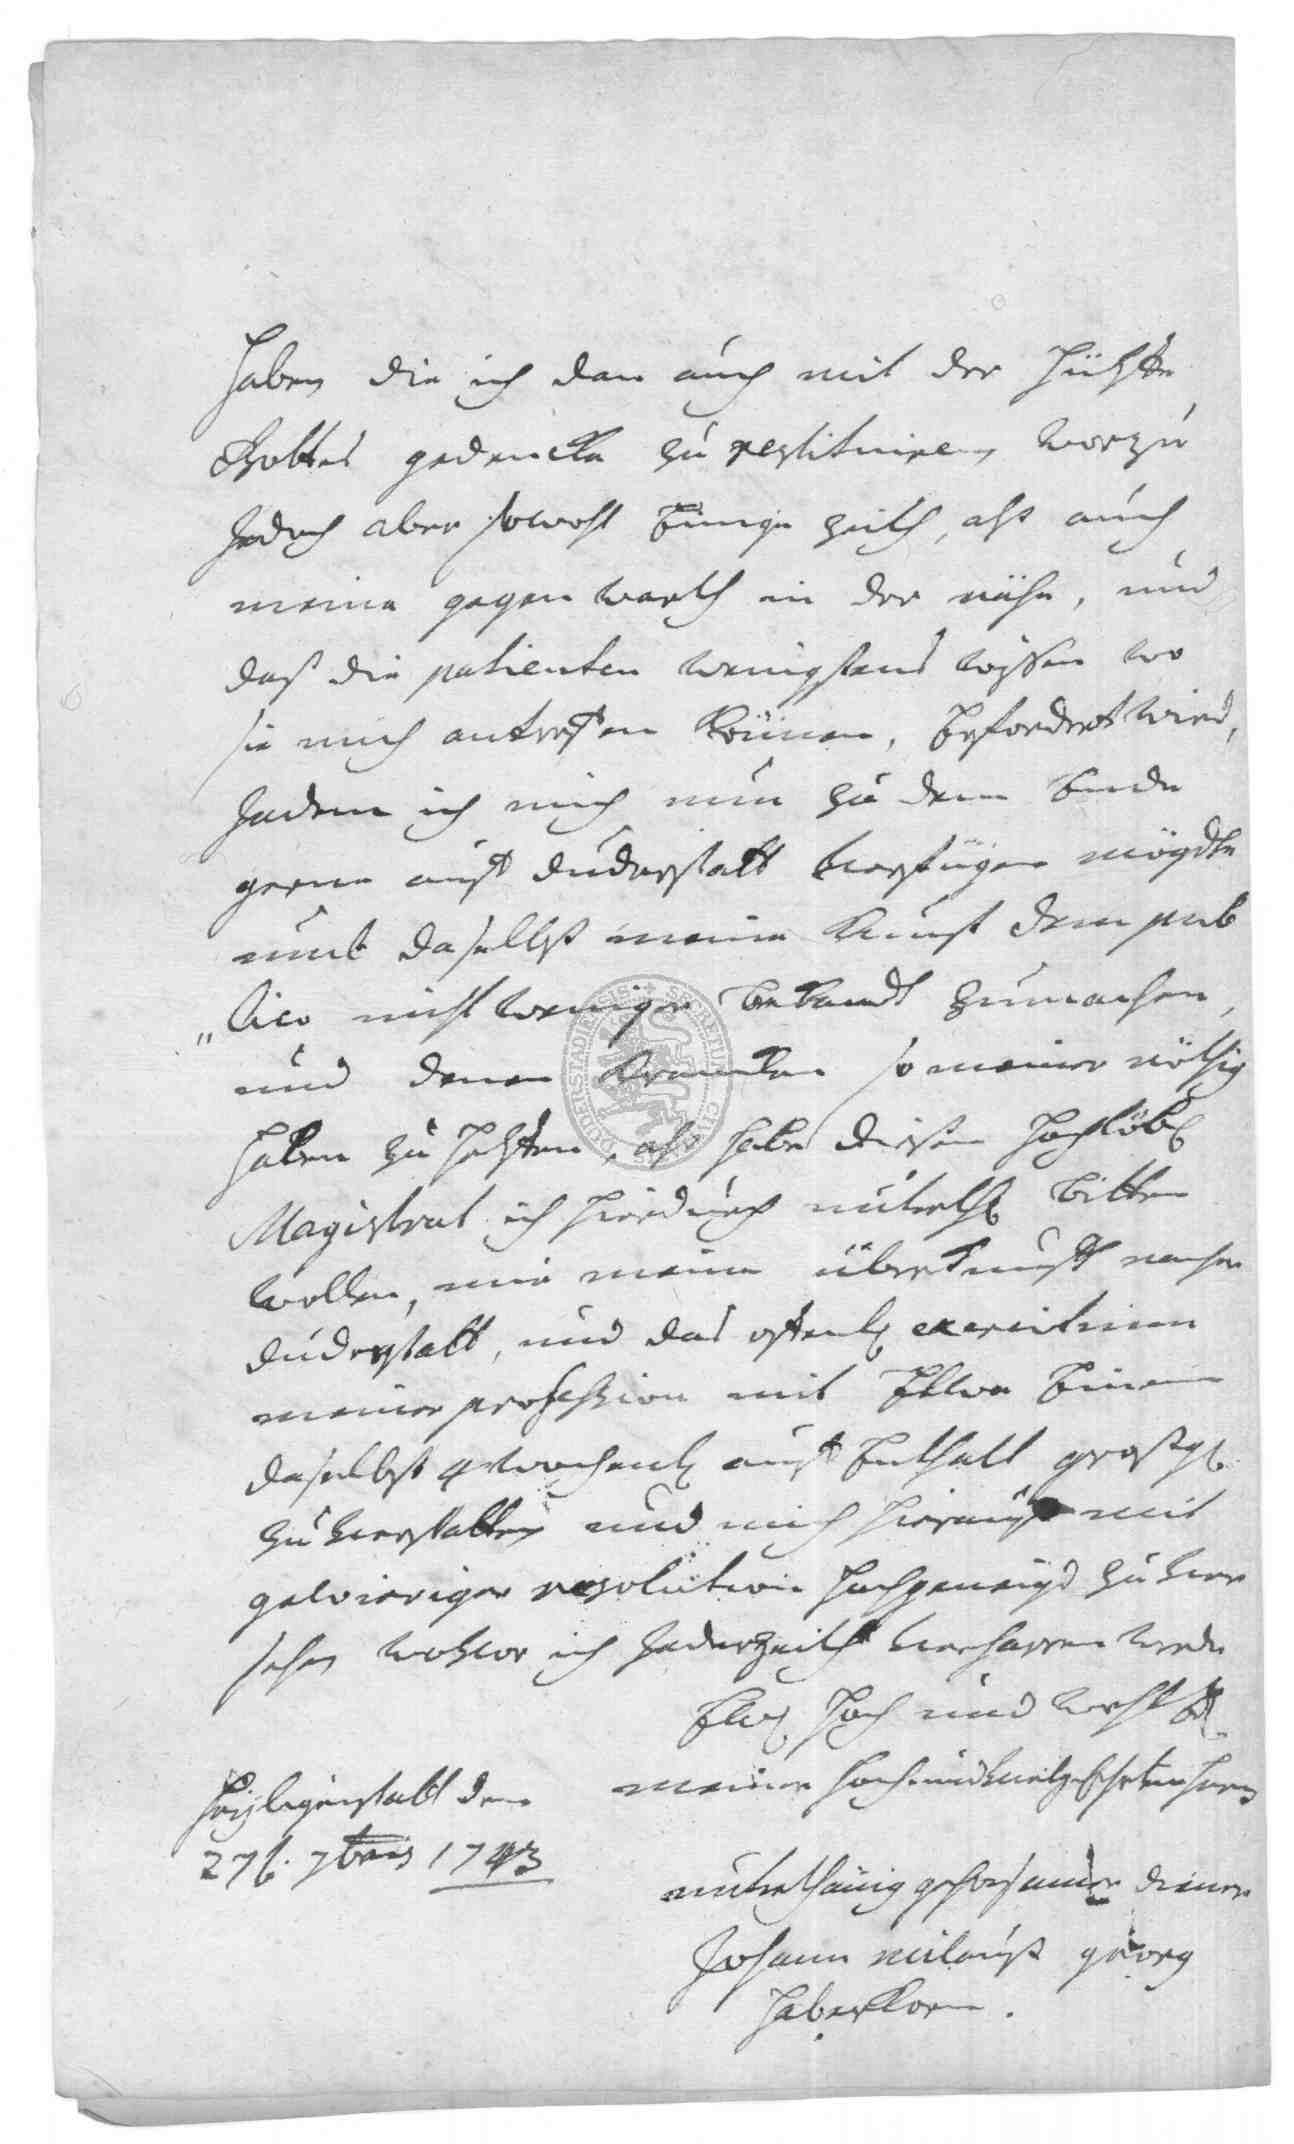 haben die ich dan auch mit der Hülffe
Gottes gedencke zu restituiren, worzu
Jedoch aber sowohl Einige zeith, alß auch
meine gegenwarth in der nähe, und
daß die patienten wenigstens wissen wo
sie mich antreffen können, Erfordert wird,
Indem ich mich nun zu dem Ende
gerne auff duderstatt verfügen mögdte
umb daselbst meine Kunst dem pub
"lico nicht weniger bekandt zumachen,
und denen Krancken so meiner nöthig
haben zu helffen, alß habe diesen hochlöbl
Magistrat ich hierdurch unterth bitten
wollen, mir meine überkunfft nacher
duderstatt, und das offentl exercitium
meiner profession mit Etwa Einem
daselbst 4 wochentl auffenthalt großg
zu verstatten und mich hierauff mit
gewieriger resolution hochgeneigd zu ver
sehen wovor ich Jederzeith verharren werde
Ew hoch und
meiner
Heyligenstatt den
27t. 7bris 1743
unterthänig gehorsamer diener
Johann georg
Haberkorn.
SECRETUM CIVITATIS DUDERSTADIENSIS